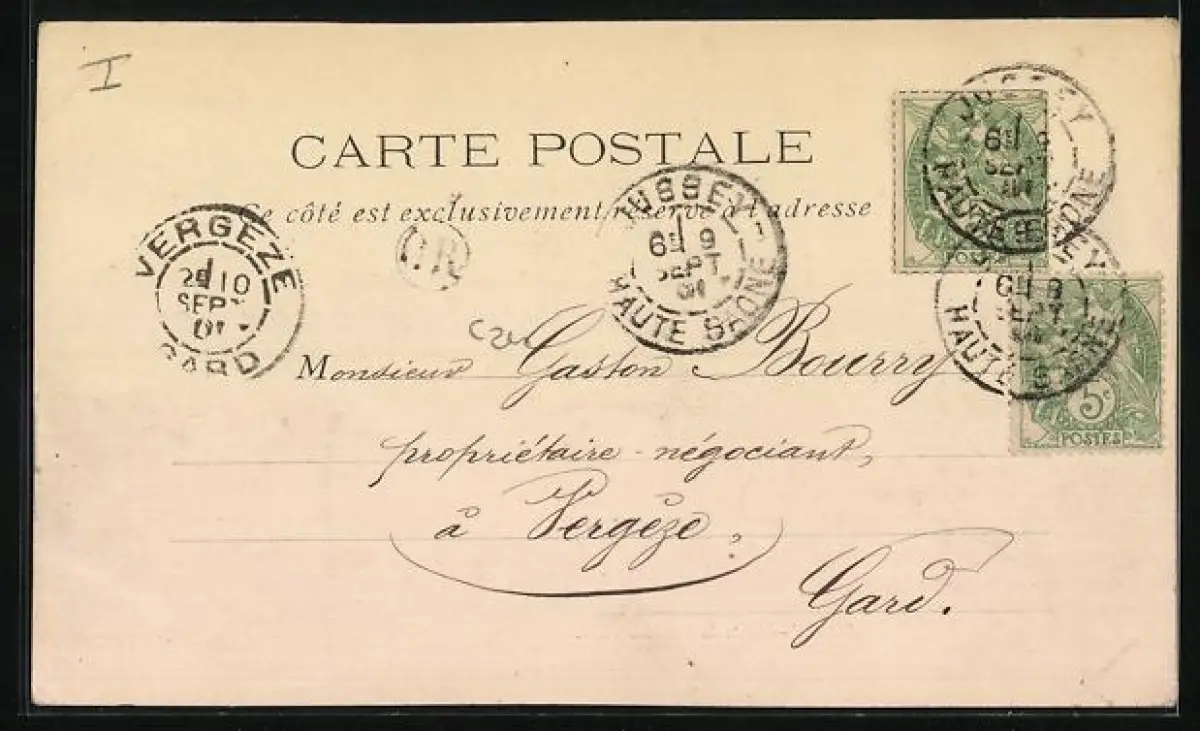 I
CARTE POSTALE
Ce côté est exclusivement réservé à l'adresse
VERGÈZE
10
SEPT
01
GARD
O.R
JUSSEY
6E 9
SEPT
01
HAUTE SAONE
JUSSEY
6E 9
SEPT
01
HAUTE SAONE
POSTES
6E 9
SEPT
HAUTE SAONE
5c
POSTES
Monsieur Gaston Bourry
propriétaire - négociant,
à Vergèze,
Gard.